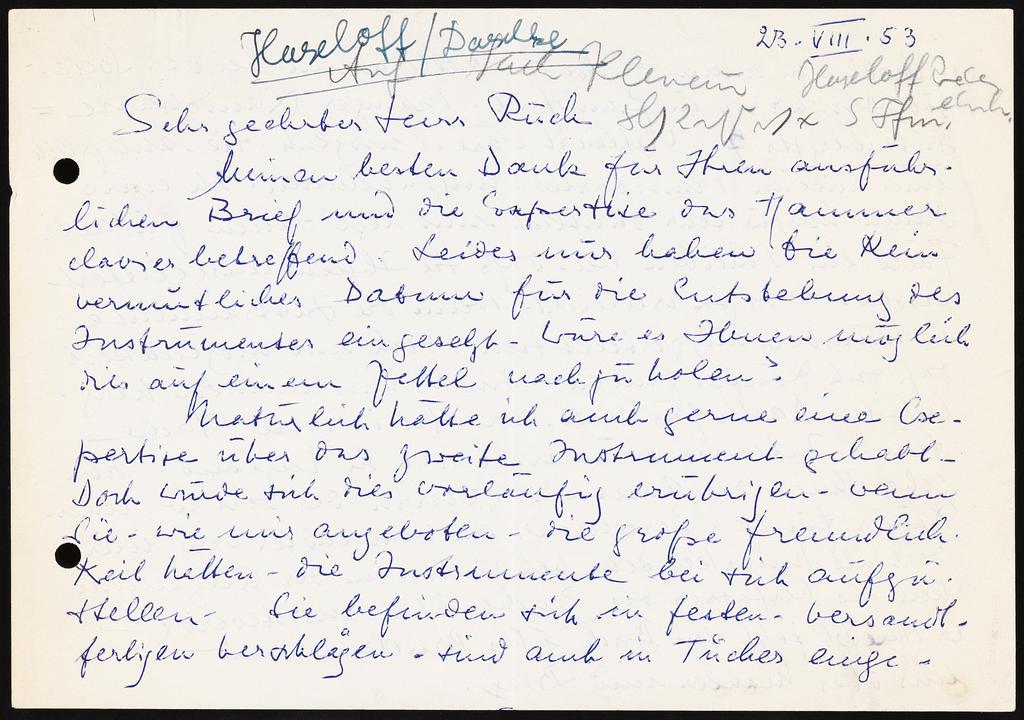 Haseloff/Daselke
23·VIII·53
Haseloff
Sehr geehrter Herr Rück
Meinen besten Dank für Ihren ausführ-
lichen Brief und die Expertise das Hammer
clavier betreffend. Leider nur haben Sie kein
vermutliches Datum für die Entstehung des
Instrumentes eingesetzt - wäre es Ihnen möglich
dies auf einem Zettel nachzuholen?
Natürlich hätte ich auch gerne eine Ex-
pertise über das zweite Instrument gehabt -
Doch würde sich dies vorläufig erübrigen - wenn
Sie - wie mir angeboten - die große Freundlich-
keit hätten - die Instrumente bei sich aufzu-
stellen - Sie befinden sich in festen - versandt-
fertigen Verschlägen - sind auch in Tücher einge-